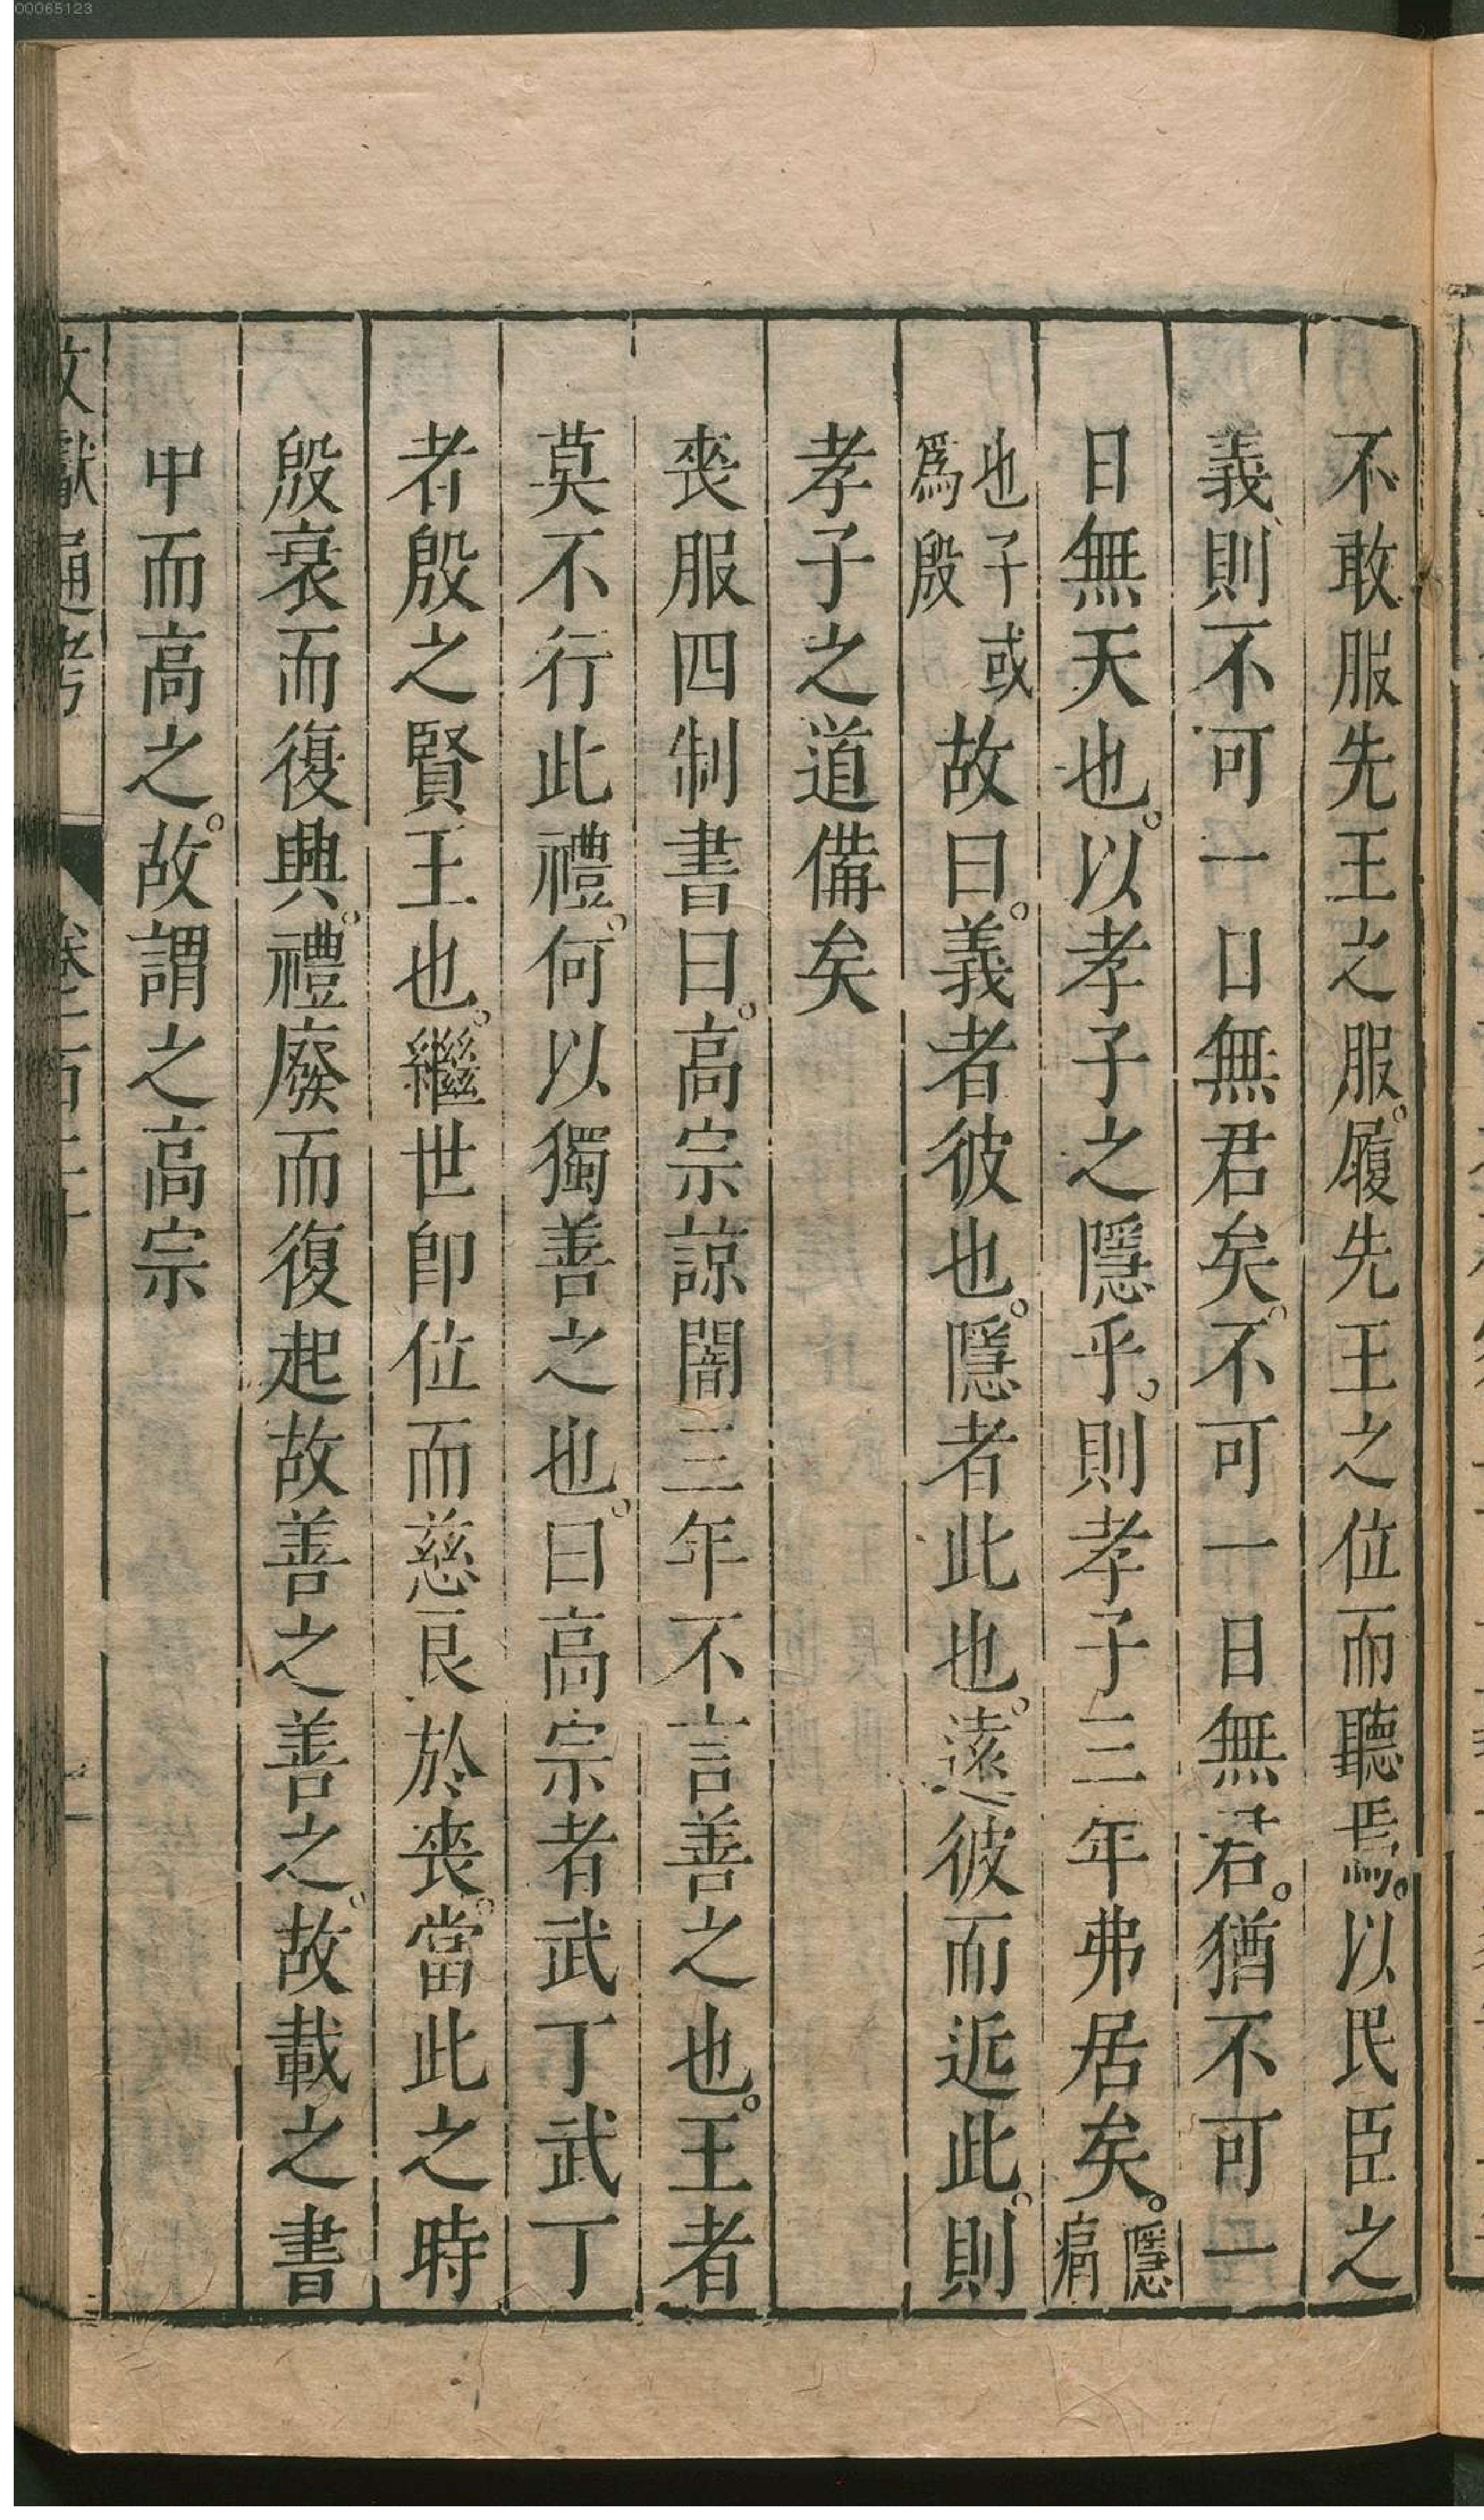 不敢服先王之服。履先王之位而聽焉。以民臣之
義則不可一日無君矣。不可一日無君。猶不可一
日無天也。以孝子之隱乎。則孝子三年弗居矣。隱痛
也子或爲殷故曰。義者彼也。隱者此也。遠彼而近此。則
孝子之道備矣
喪服四制書曰。高宗諒闇三年不言善之也。王者
莫不行此禮。何以獨善之也。曰高宗者武丁武丁
者殷之賢王也。繼世卽位而慈良於喪。當此之時
殷衰而復興。禮廢而復起故善之善之。故載之書
中而高之。故謂之高宗
文獻通考
00065123